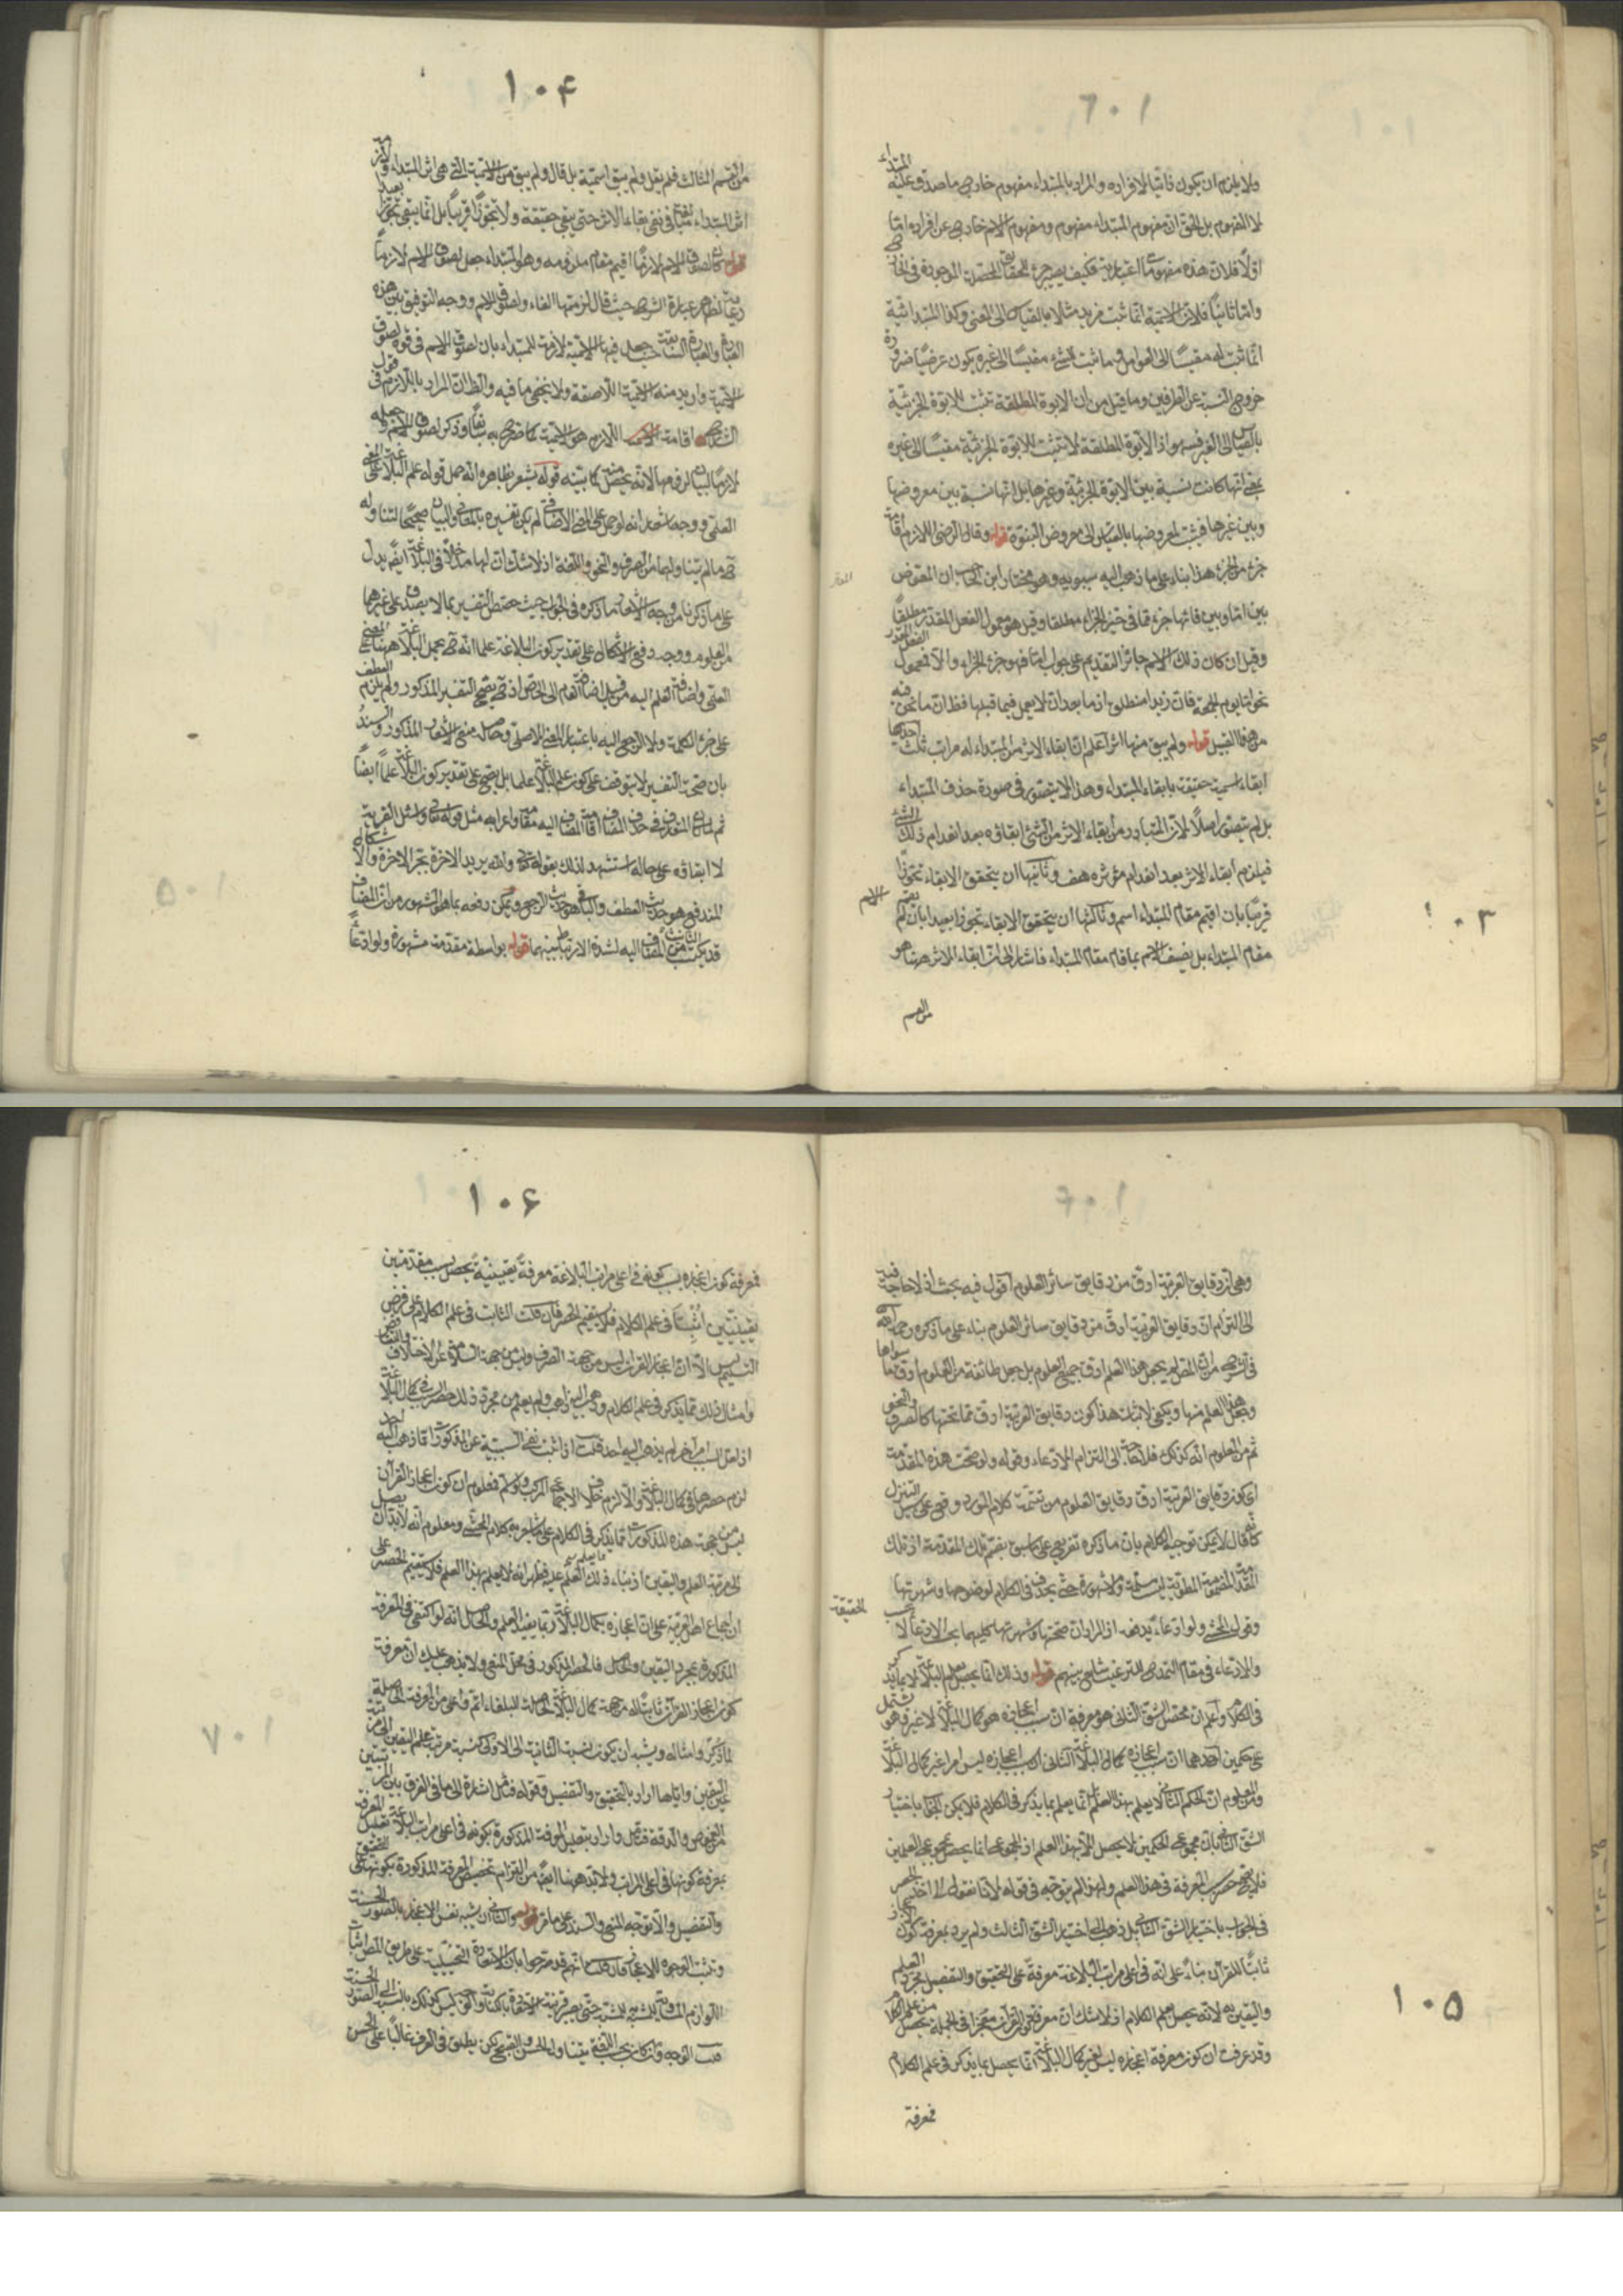 ١٠٣
ولا يلزم ان يكون ذاتيا لافراده والمراد بالمبتداء مفهوم خارجى ما صدق عليه
لا المفهوم بل الحق ان مفهوم المبتداء مفهوم ومفهوم الاسم خارجى عن افراده امّا
اوّلا فلان هذه مفهومات اعتبارية فكيف يصير جزء للحقايق المحصلة الموجودة فى الخارج
وامّا ثانيا فلان الاسمية انّما ثبت لزيد مثلا بالقياس الى المعنى وكذا المبتدائية
انّما ثبت له مقيسًا الى العوامل وما ثبت لشىء مقيسًا الى غيره يكون عرضيًا ضرورة
خروج النسبة عن الطرفين وما قيل من ان الابوة المطلقة تثبت للابوة الجزئية
بالقياس الى الغير فسهو اذ الابوة المطلقة لا تثبت للابوة الجزئية مقيسًا الى غيره
بمعنى انها كانت نسبة بين الابوة الجزئية وغيرها بل انها نسبة بين معروضها
وبين غيرها فيثبت لمعروضها بالقياس الى معروض البنوة قوله وقال الرضى اللازم اقامة
جزء من الجزاء هذا بناء على ما ذهب اليه سيبويه وهو مختار ابن الحاجب ان المعوض
بين امّا وبين فائها جزء ممّا فى حيز الجزاء مطلقا وقيل هو معمول الفعل المقدر مطلقًا
وقيل ان كان ذلك الاسم جائز التقديم على جواب امّا فهو جزء الجزاء والا فمعمول الفعل المقدر
نحو امّا يوم الجمعة فان زيدا منطلق اذ ما بعد ان لا يعمل فيما قبلها فظ ان ما نحن فيه
من هذا القبيل قوله ولم يبق منها اثر اعلم ان ابقاء الاثر من المبتداء له مراتب ثلث احدها
ابقاء اسمية حقيقة بابقاء المبتداء وهذا لا يتصور فى صورة حذف المبتداء
بل لم يتصور اصلًا لان المتبادر من بقاء الاثر من الشىء ابقاؤه بعد انعدام ذلك الشىء
فيلزم ابقاء الاثر بعد انعدام مؤثره هف وثانيها ان يتحقق الابقاء تجوّزًا
قريبًا بان اقيم مقام المبتداء اسم وثالثها ان يتحقق الابقاء تجوزا بعيدا بان لم يقم الاسم
مقام المبتداء بل يضيف الاسم بما قام مقام المبتداء فاشار الى ان ابقاء الاثر ههنا هو
من القسم
١٠۴
من القسم الثالث فلم يقل ولم يبق اسمية بل قال ولم يبق من الاسمية التى هى اثر المبتداء
اثر المبتداء فى نفى بقاء الاثر حتى يبقى حقيقة ولا تجوزًا قريبًا بل انّما يبقى تجوزًا بعيدًا
قوله كان لصوق الاسم لازمًا اقيم مقام ملزومه وهو المبتداء جعل لصوق الاسم لازمًا
رعاية لظاهر عبارة الشرح حيث قال لزمتها الفاء ولصوق الاسم ووجه التوفيق بين هذه
العبارة والعبارة السابقة حيث جعل فيها الاسمية لازمة للمبتداء بان لصوق الاسم فى قوة لصوق
الاسمية واريد منه الاسمية اللاصقة ولا يخفى ما فيه والظ ان المراد باللازم فى قول
الشارح اقامة اللازم هو الاسمية كما صرح به سابقًا وذكر لصوق الاسم وجعله
لازمًا لبيان لزومها لانه يحصل منه كما بيّنه قوله يشعر بظاهره انه حمل قوله علم البلاغة على المعنى
العلمى ووجه اشعاره انه لو حمل على المعنى الاضافى لم يكن تفسيره بالمعانى والبيان صحيحًا لتناوله
ح ما لم يتناولهما من الصرف والنحو واللغة اذ لا شك ان لها مدخلًا فى البلاغة ايضًا يدل
على ما ذكرنا من وجه الاشعار ما ذكره فى الجواب حيث خصص التفسير بما لا يصدق على غيرهما
من العلوم ووجه دفع الاشكال على تقدير كون البلاغة علما انه ح يحمل البلاغة ههنا على المعنى
العلمى واضافة العلم اليه من قبيل اضافة العام الى الخاص اذ ح يصح التفسير المذكور ولم يلزم العطف
على جزء الكلمة ولا الرجوع اليه باعتبار المعنى الاصلى وحاصله منع الاشعار المذكور والسند
بان صحة التفسير لا يتوقف على كون علم البلاغة علما بل يصح على تقدير كون البلاغة علمًا ايضًا
ثم لما كان المتعارف فى حذف المضاف اقامة المضاف اليه مقامه واعرابه مثل قوله تعالى واسئل القرية
لا ابقاؤه على حاله استشهد لذلك بقوله تعالى والله يريد الاخرة بجر الاخرة والاشكال
المندفع هو حديث العطف والباقى هو حديث الرجوع ويمكن دفعه بما هو المشهور من ان المضاف
قد يكتسب التانيث من المضاف اليه لشدة الارتباط بينهما قوله بواسطة مقدمة مشهورة ولو ادعاءً
١٠۵
وهى ان دقايق العربية ادق من دقايق سائر العلوم اقول فيه بحث اذ لا حاجة فيه
الى التزام ان دقايق العربية ادق من دقايق سائر العلوم بناء على ما ذكره رحمه الله
فى الشرح من ان المص لم يجعل هذا العلم ادق جميع العلوم بل جعل طائفة من العلوم ادق مما سواها
وجعل هذا العلم منها ويكفى لاثبات هذا كون دقايق العربية ادق مما تحتها كالصرف والنحو
ثم من المعلوم انه كذلك فلا حاجة الى التزام الادعاء وقوله ولو صحت هذه المقدمة
اى كون دقايق العربية ادق دقايق العلوم من تتمة كلام المورد وقع على سبيل التنزل
كانه قال لا يمكن توجيه الكلام بان ما ذكره تفريع على ما سبق بضم تلك المقدمة اذ تلك
المقدمة المضمومة المطوية ليست مسلمة ولا مشهورة حتى يحذف فى الكلام لوضوحها وشهرتها
وقول المحشى ولو ادعاءً يدفعه اذ المراد ان صحتها وشهرتها كليهما بحسب الادعاء لا بحسب الحقيقة
والادعاء فى مقام التمدح والترغيب شايع بينهم قوله وذلك انّما يحصل بعلم البلاغة لا بما يذكر
فى الكلام واعلم ان محصل الشق الثانى هو معرفة ان سبب اعجازه هو كمال البلاغة لا غير وهو يشتمل
على حكمين احدهما ان سبب اعجازه كمال البلاغة الثانى ان سبب اعجازه ليس امرا غير كمال البلاغة
ومن المعلوم ان الحكم الثانى لا يعلم بهذا العلم بل انّما يعلم بما يذكر فى الكلام فلا يمكن الجواب باختيار
الشق الثانى بان مجموع الحكمين لا يحصل الا بهذا العلم اذ المجموع انما يحصل بمجموع العلمين
فلا يصح حصر المعرفة فى هذا العلم ولهذا لم يتوجه فى قوله لانا نقول الى اخذ الحصر
فى الجواب باختيار الشق الثانى بل ذهب الى اختيار الشق الثالث ولم يرد بمعرفة كون الاعجاز
ثابتًا للقران بناءً على انه فى اعلى مراتب البلاغة معرفة على التحقيق والتفصيل مجرد العلم
واليقين به لانه يحصل بعلم الكلام اذ لا شك ان معرفة كون القران معجزا فى الجملة يحصل من علم الكلام
وقد عرفت ان كون معرفة اعجازه ليس لغير كمال البلاغة انّما يحصل بما يذكر فى علم الكلام
فمعرفة
١٠۶
فمعرفة كون اعجازه بسبب كونه فى اعلى مراتب البلاغة معرفةً يقينيةً يحصل بسبب مقدمتين
يقينيّتين اُثبتتا فى علم الكلام فلا يستقيم الحصر فان قلت الثابت فى علم الكلام على فرض
التسليم ليس الا ان اعجاز القران ليس من جهة الصرف وليس من جهة السلامة عن الاختلاف والتناقض
وامثال ذلك مما يذكر فى علم الكلام وذهب اليه ذاهب ولم يعلم من مجرد ذلك حصر السبب فى كمال البلاغة
اذ لعل السبب امر آخر لم يذهب اليه احد قلت اذا ثبت نفى السببية عن المذكورات مما ذهب اليه احد
لزم حصرها فى كمال البلاغة والا لزم خلاف الاجماع المركب ولو سلم فمعلوم ان كون اعجاز القرآن
ليس من جهة هذه المذكورات مما يذكر فى الكلام على ما صرح به كلام المحشى ومعلوم انه لا بد ان يصل
الى مرتبة العلم واليقين اذ بناء ذلك العلم عليه فظهر انه لا يعلم بهذا العلم فلا يستقيم الحصر على
ان اجماع اهل العربية على ان اعجازه بكمال البلاغة ربما يفيد العلم والحاصل انه لو اكتفى فى المعرفة
المذكورة بمجرد اليقين والحاصل فالحصر المذكور فى محل المنع ولا يذهب عليك ان معرفة
كون اعجاز القرآن ثابتًا له من جهة كمال البلاغة الحاصلة للبلغاء اتم واعلى من المعرفة الحاصلة
لما ذكر وامثاله ويشبه ان يكون نسبة الثانية الى الاولى كنسبة مرتبة علم اليقين الى مرتبة
عين اليقين واياها اراد بالتحقيق والتفصيل وقوله فتأمل اشارة الى ما فى الفرق بين المرتبتين
من الغموض والدقة فتأمل واراد بتعليل المعرفة المذكورة بكونه فى اعلى مراتب البلاغة تعليل المعرفة
بمعرفة كونها فى اعلى المراتب ولا بد ههنا ايضًا من التزام تخصيص المعرفة المذكورة بكونها على التحقيق
والتفصيل والا توجه المنع والسند على ما مر قوله والثانى ان يشبه نفس الاعجاز بالصور الحسنة
ويثبت الوجوه للاعجاز فان قلت انهم قد صرحوا بان الاستعارة التخييلية على طريق المص اثبات
اللوازم المساوية للمشبه به للمشبه حتى يصير قرينة للاستعارة بالكناية والوجه ليس كذلك بالنسبة الى الصور الحسنة
قلت الوجه وان كان بحسب اللغة يتناول الحسن والقبيح لكن يطلق فى العرف غالبًا على الحسن